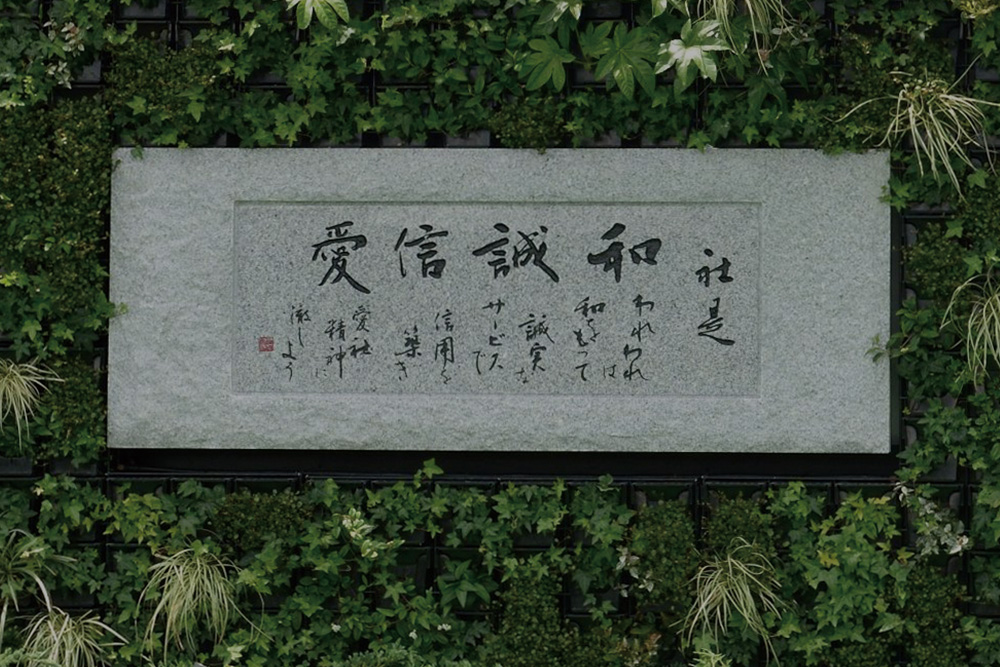 社是
和誠信愛
われわれは
和をもって
誠実な
サービスで
信用を
築き
愛社
精神に
徹しよう